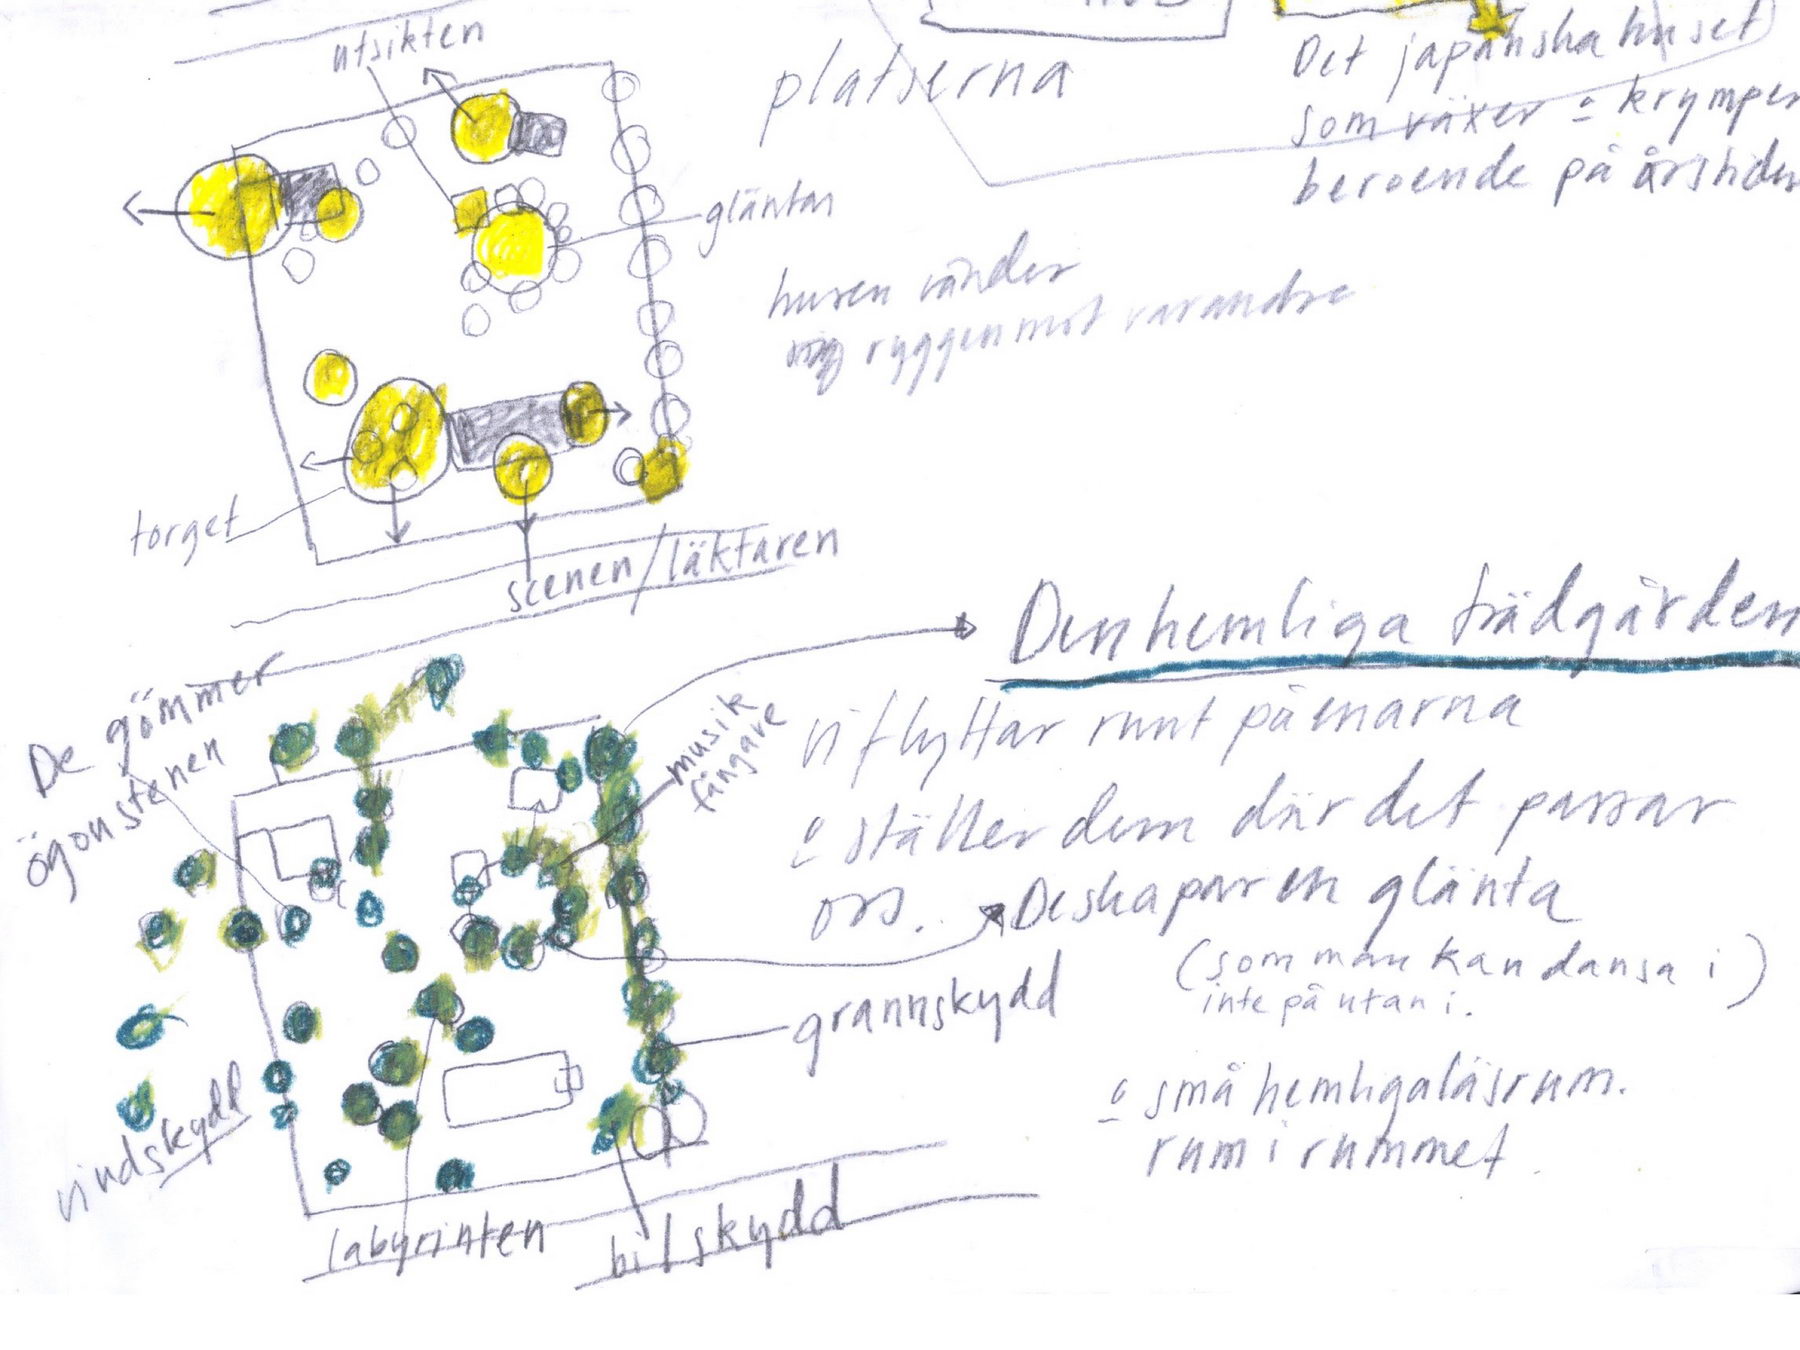 utsikten
platserna
Det japanska huset
som växer o krymper
beroende på årstiden
gläntan
husen vänder
ryggen mot varandra
torget
scenen/läktaren
Den hemliga trädgården
De gömmer
ögonstenen
musik
fångare
vi flyttar runt på enarna
o ställer dem där det passar
oss.
De skapar en glänta
(som man kan dansa i)
inte på utan i.
grannskydd
o små hemliga läsrum.
rum i rummet.
vindskydd
labyrinten
bilskydd